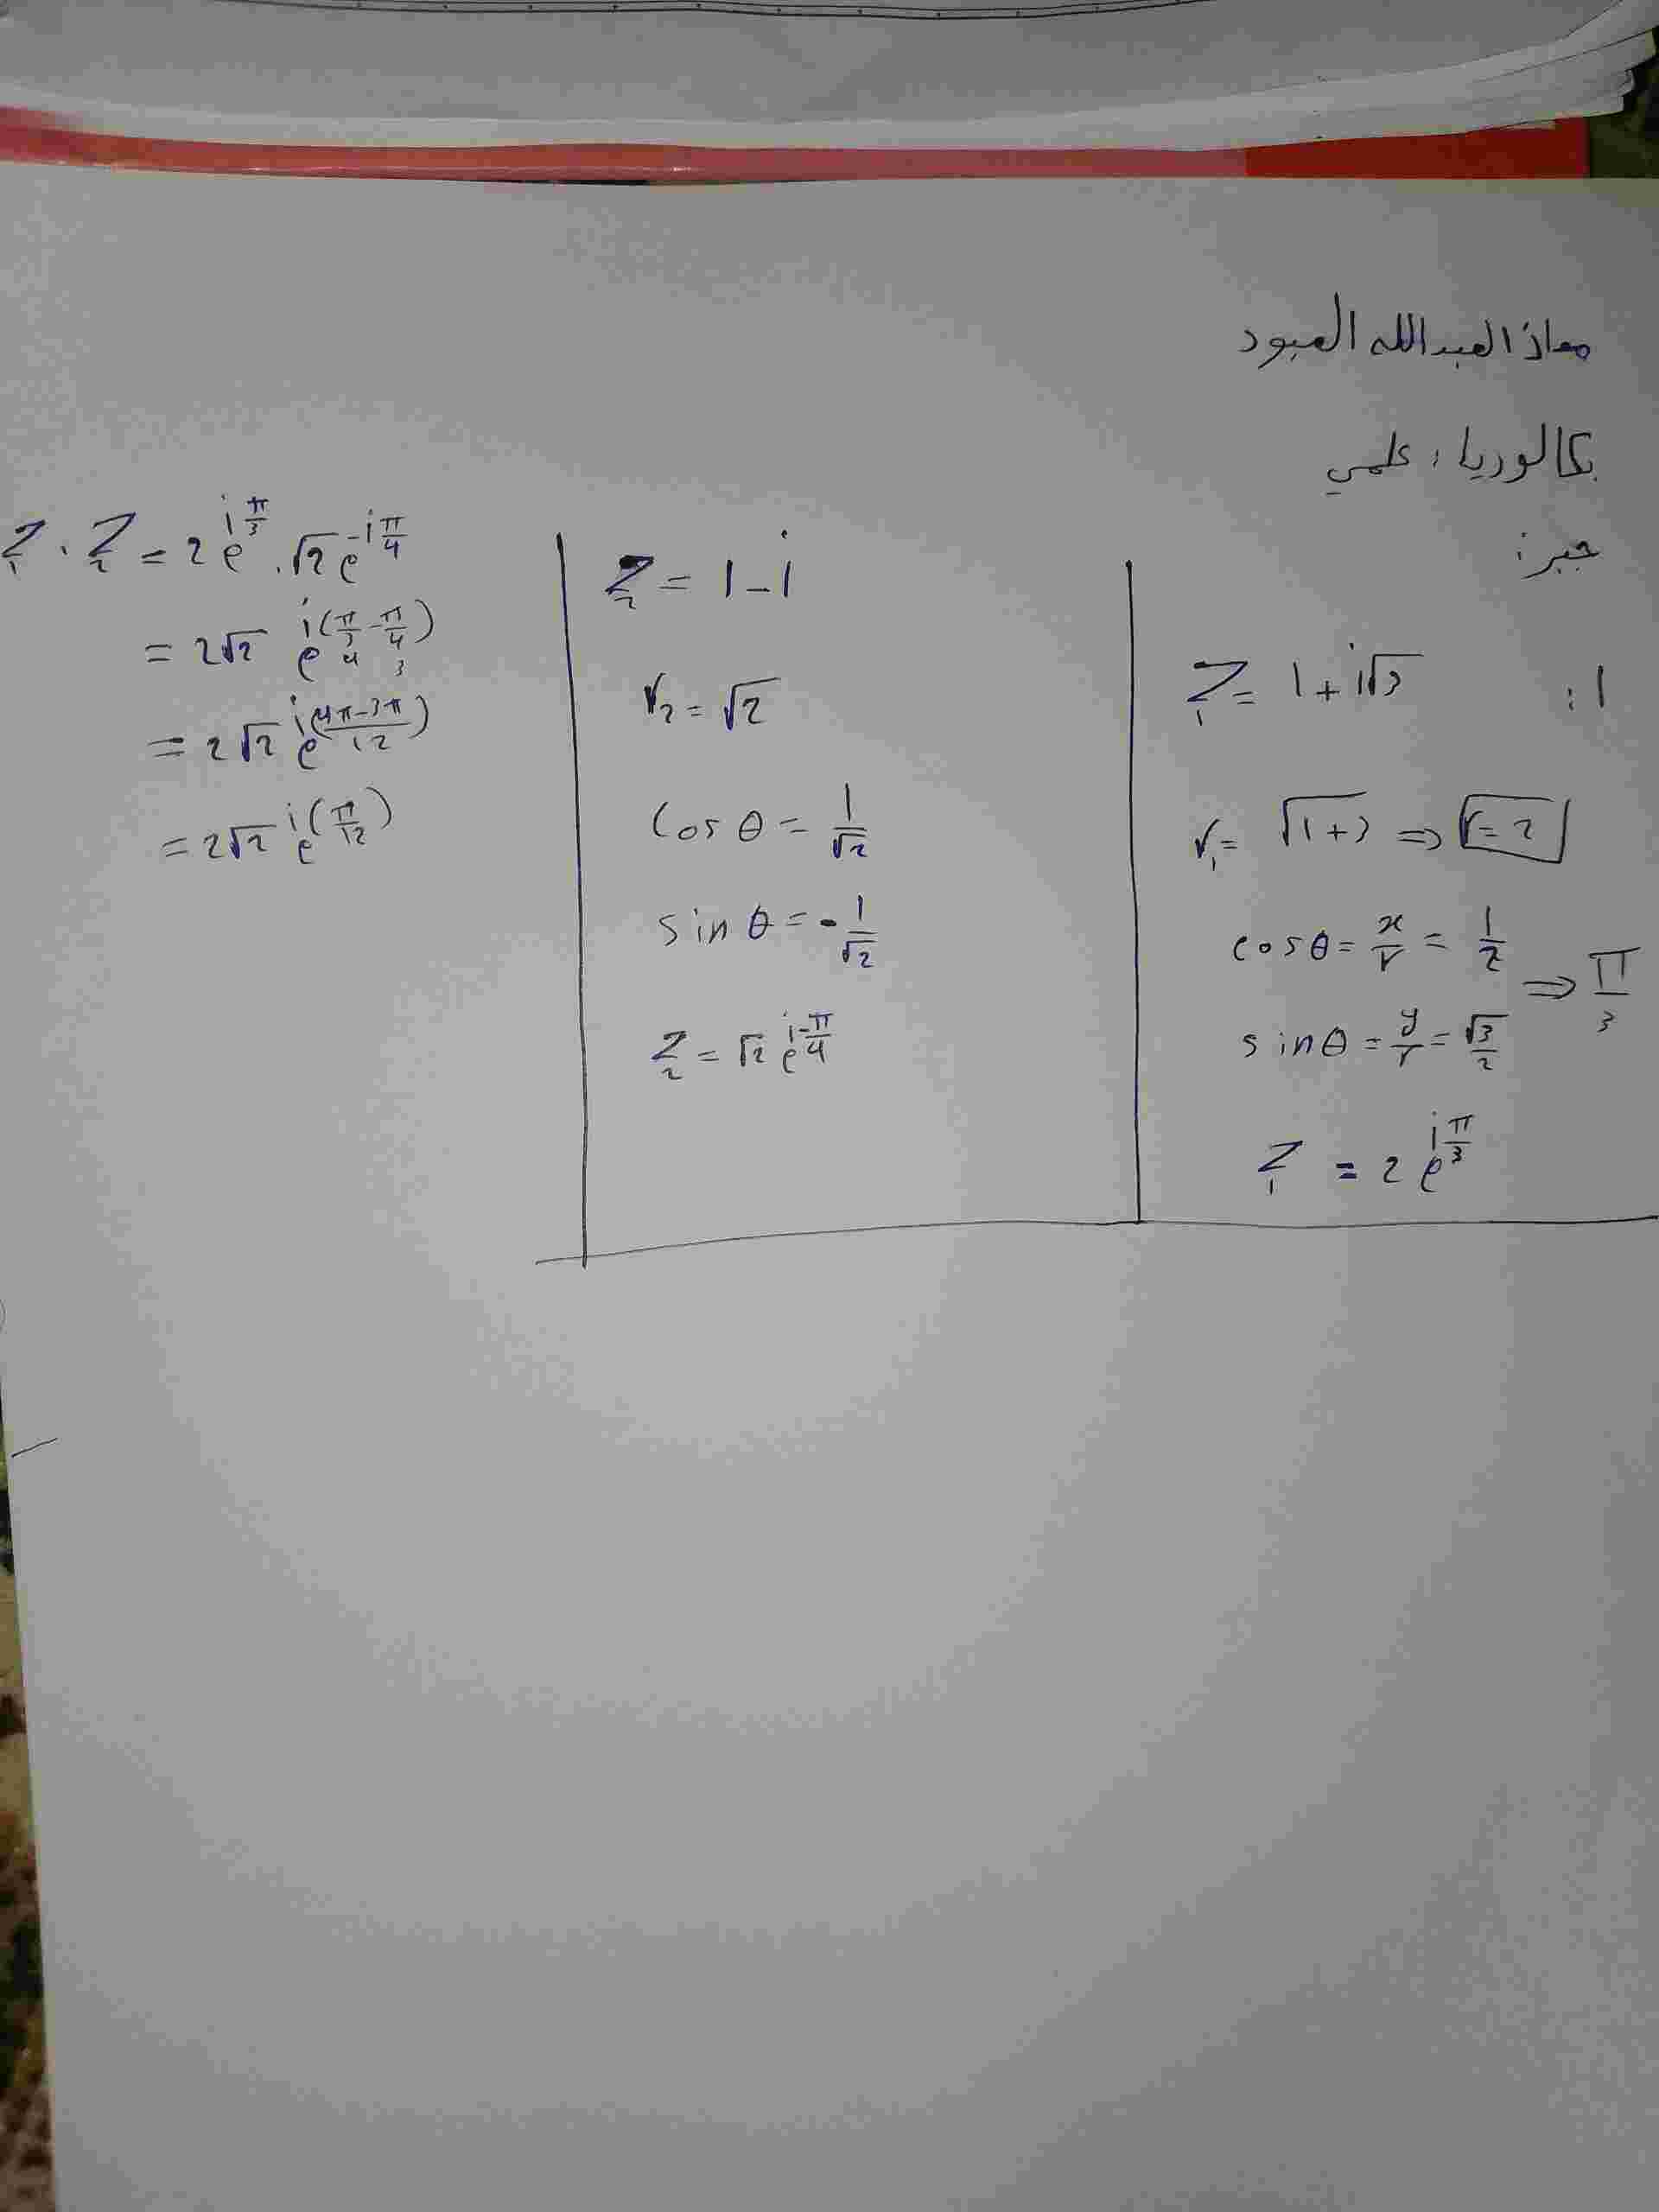 معاذ العبدالله العبود
بكالوريا : علمي
جبر :
1 :
Z₁ = 1 + i√3
r₁ = √(1+3) ⇒ r = 2
cos θ = x/r = 1/2
sin θ = y/r = √3/2
⇒ π/3
Z₁ = 2 e^(i π/3)
Z₂ = 1 - i
r₂ = √2
cos θ = 1/√2
sin θ = - 1/√2
Z₂ = √2 e^(i -π/4)
Z₁ . Z₂ = 2 e^(i π/3) . √2 e^(-i π/4)
= 2√2 e^(i(π/3 - π/4))
4 3
= 2√2 e^(i(4π-3π)/12)
= 2√2 e^(i(π/12))